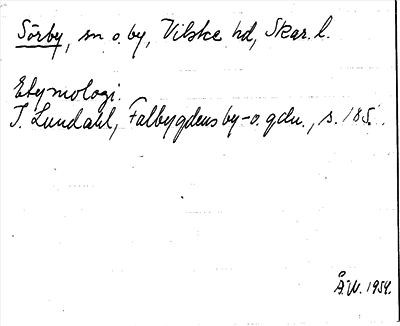 Sörby, sn o. by, Vilske hd, Skar. l.
Etymologi.
I. Lundahl, Falbygdens by- o. gdn., s. 185.
Å.W. 1954.